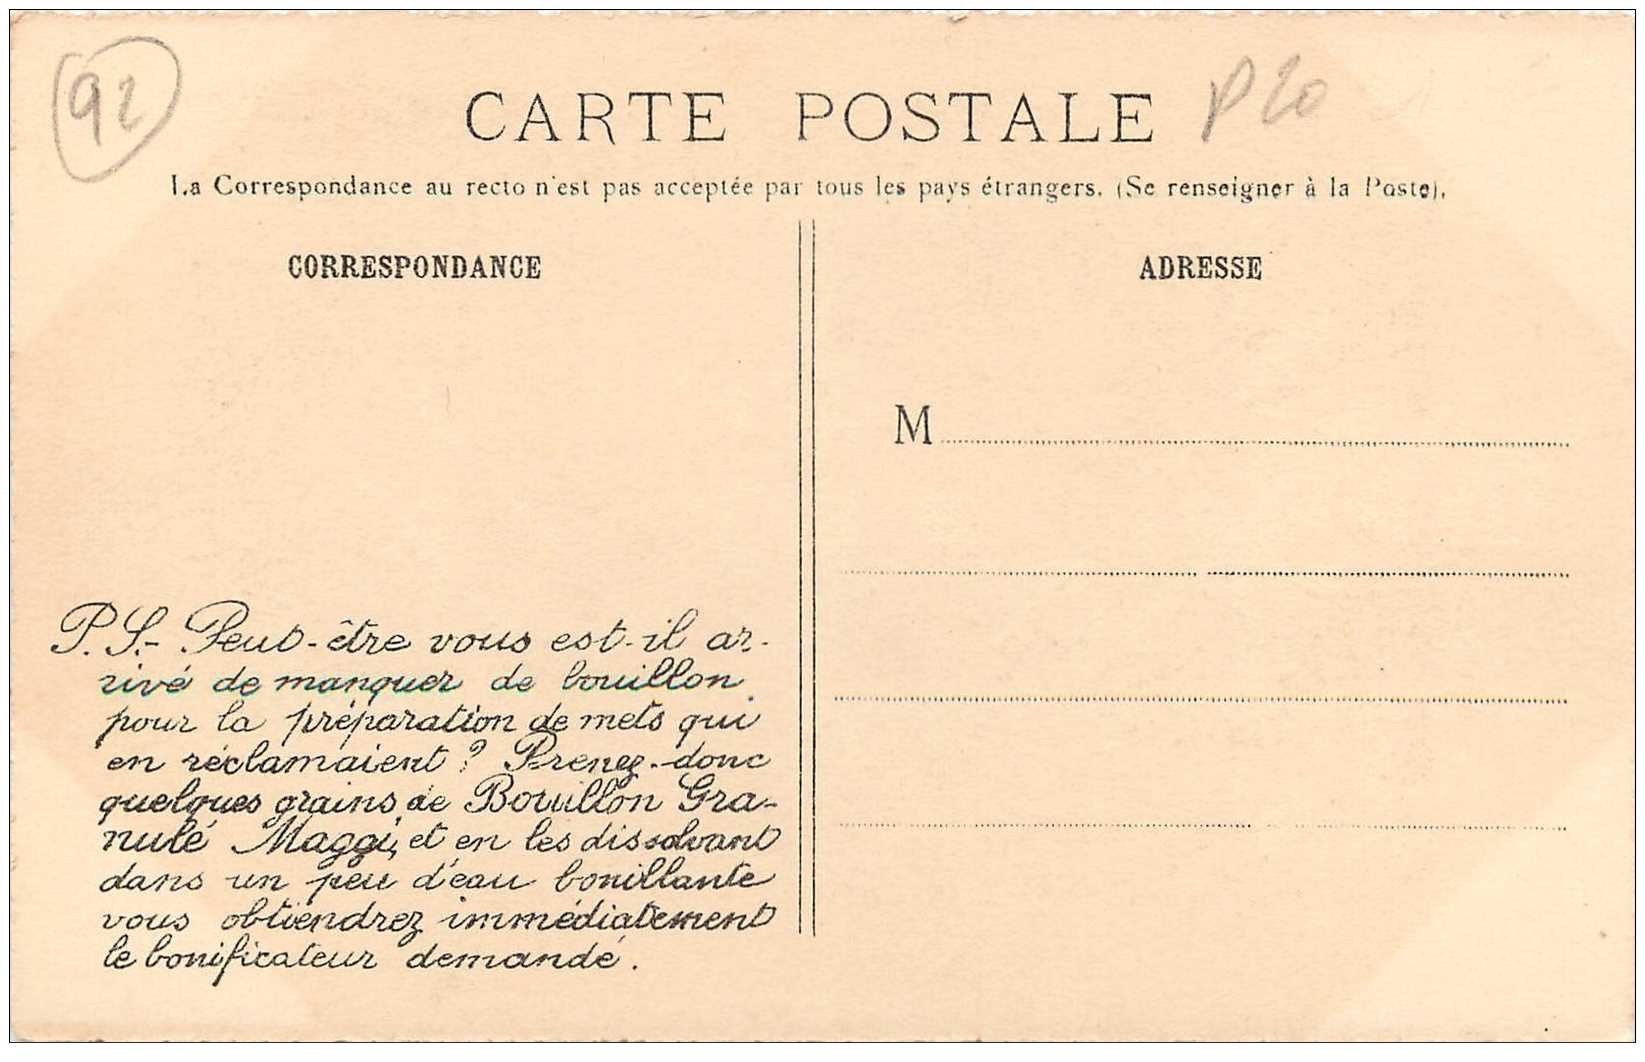 92
CARTE POSTALE
P20
La Correspondance au recto n'est pas acceptée par tous les pays étrangers. (Se renseigner à la Poste).
CORRESPONDANCE
ADRESSE
M
P.S.- Peut-être vous est-il ar-
rivé de manquer de bouillon
pour la préparation de mets qui
en réclamaient? Prenez-donc
quelques grains de Bouillon Gra-
nulé Maggi, et en les dissolvant
dans un peu d'eau bouillante
vous obtiendrez immédiatement
le bonificateur demandé.